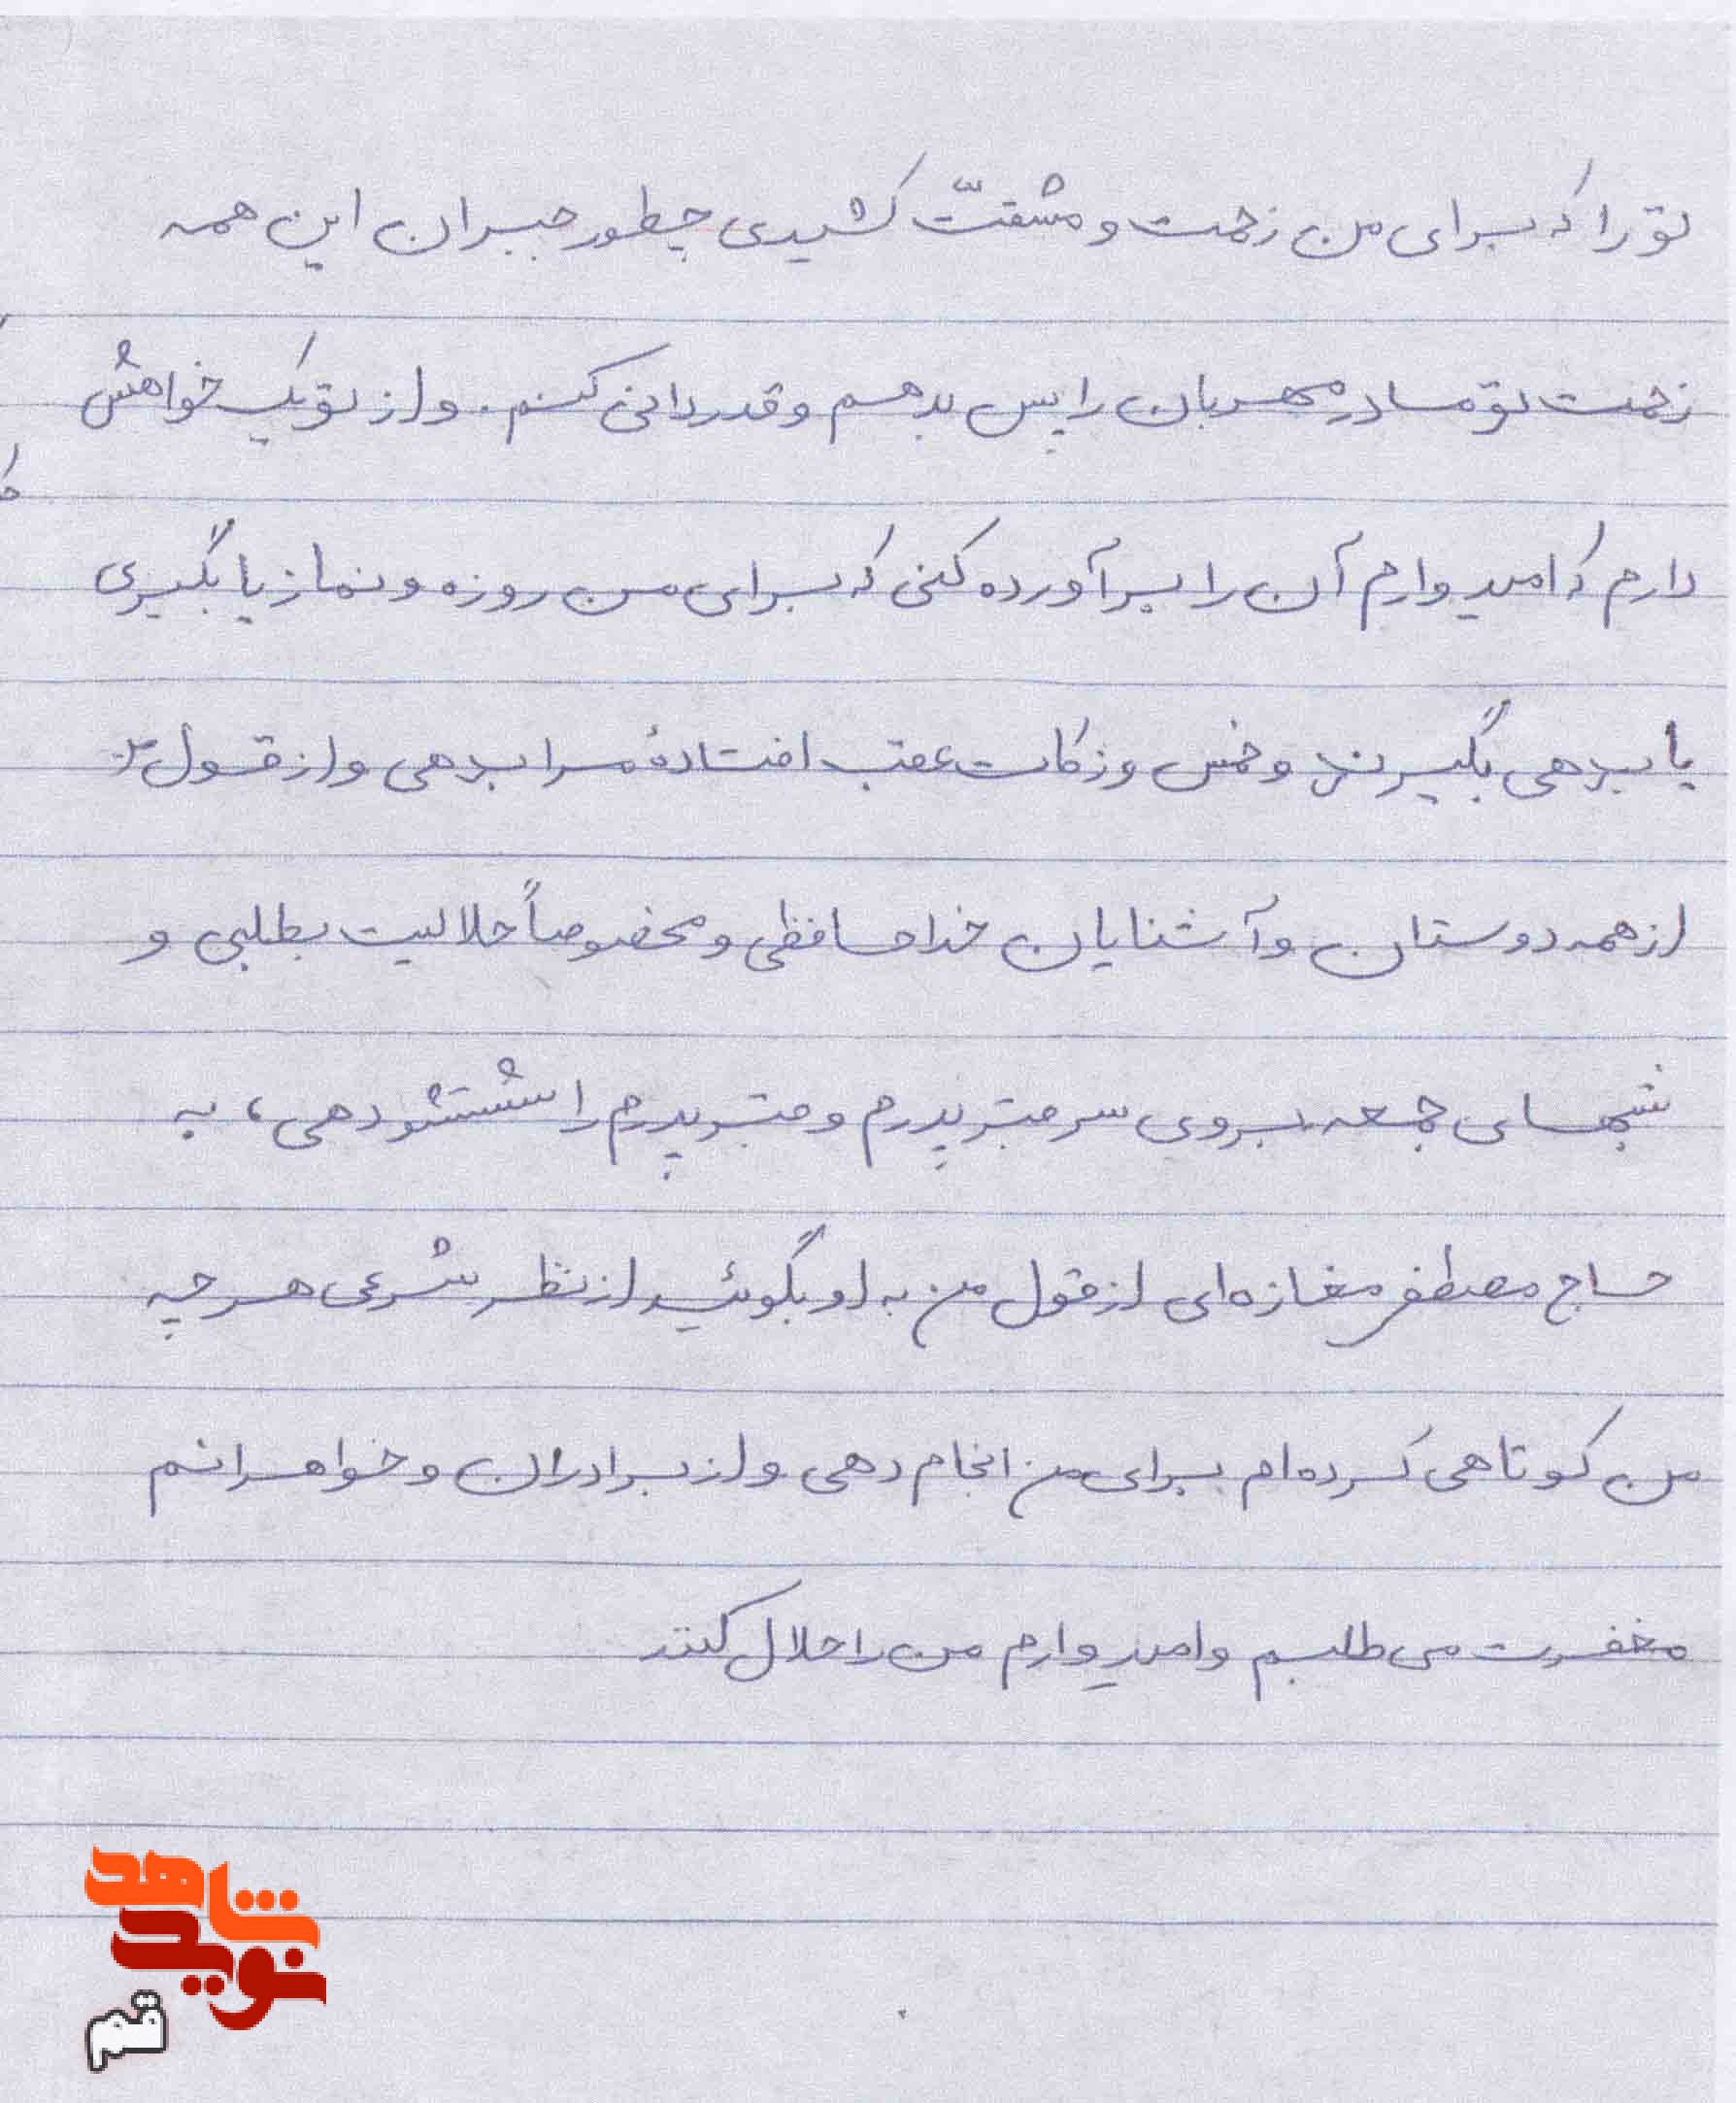 تو را که برای من زحمت و مشقتّ کشیدی چطور جبران این همه
زحمت تو مادر مهربان را پس بدهم و قدردانی کنم. و از تو یک خواهش
دارم که امیدوارم آن را برآورده کنی که برای من روزه و نماز یا بگیری
یا بدهی بگیرند و خمس و زکات عقب افتادهٔ مرا بدهی و از قول
از همه دوستان و آشنایان خداحافظی و مخصوصاً حلالیت بطلبی و
شبهای جمعه بروی سر قبر پدرم و قبر پدرم را شستشو دهی، به
حاج مصطفی مغازه‌ای از قول من به او بگوئید از نظر شرعی هر چه
من کوتاهی کرده‌ام برای من انجام دهی و از برادران و خواهرانم
مغفرت می‌طلبم و امیدوارم من را حلال کنند
شاهد
نوید
قم